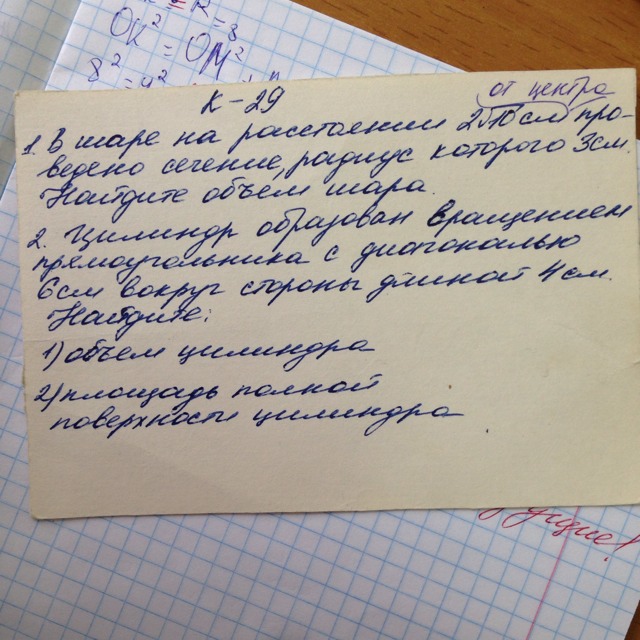 OK² = OM²
К - 29
от центра
1. В шаре на расстоянии 2√10 см про-
ведено сечение, радиус которого 3см.
Найдите объем шара.
2. Цилиндр образован вращением
прямоугольника с диагональю
6см вокруг стороны длиной 4см.
Найдите:
1) объем цилиндра
2) площадь полной
поверхности цилиндра